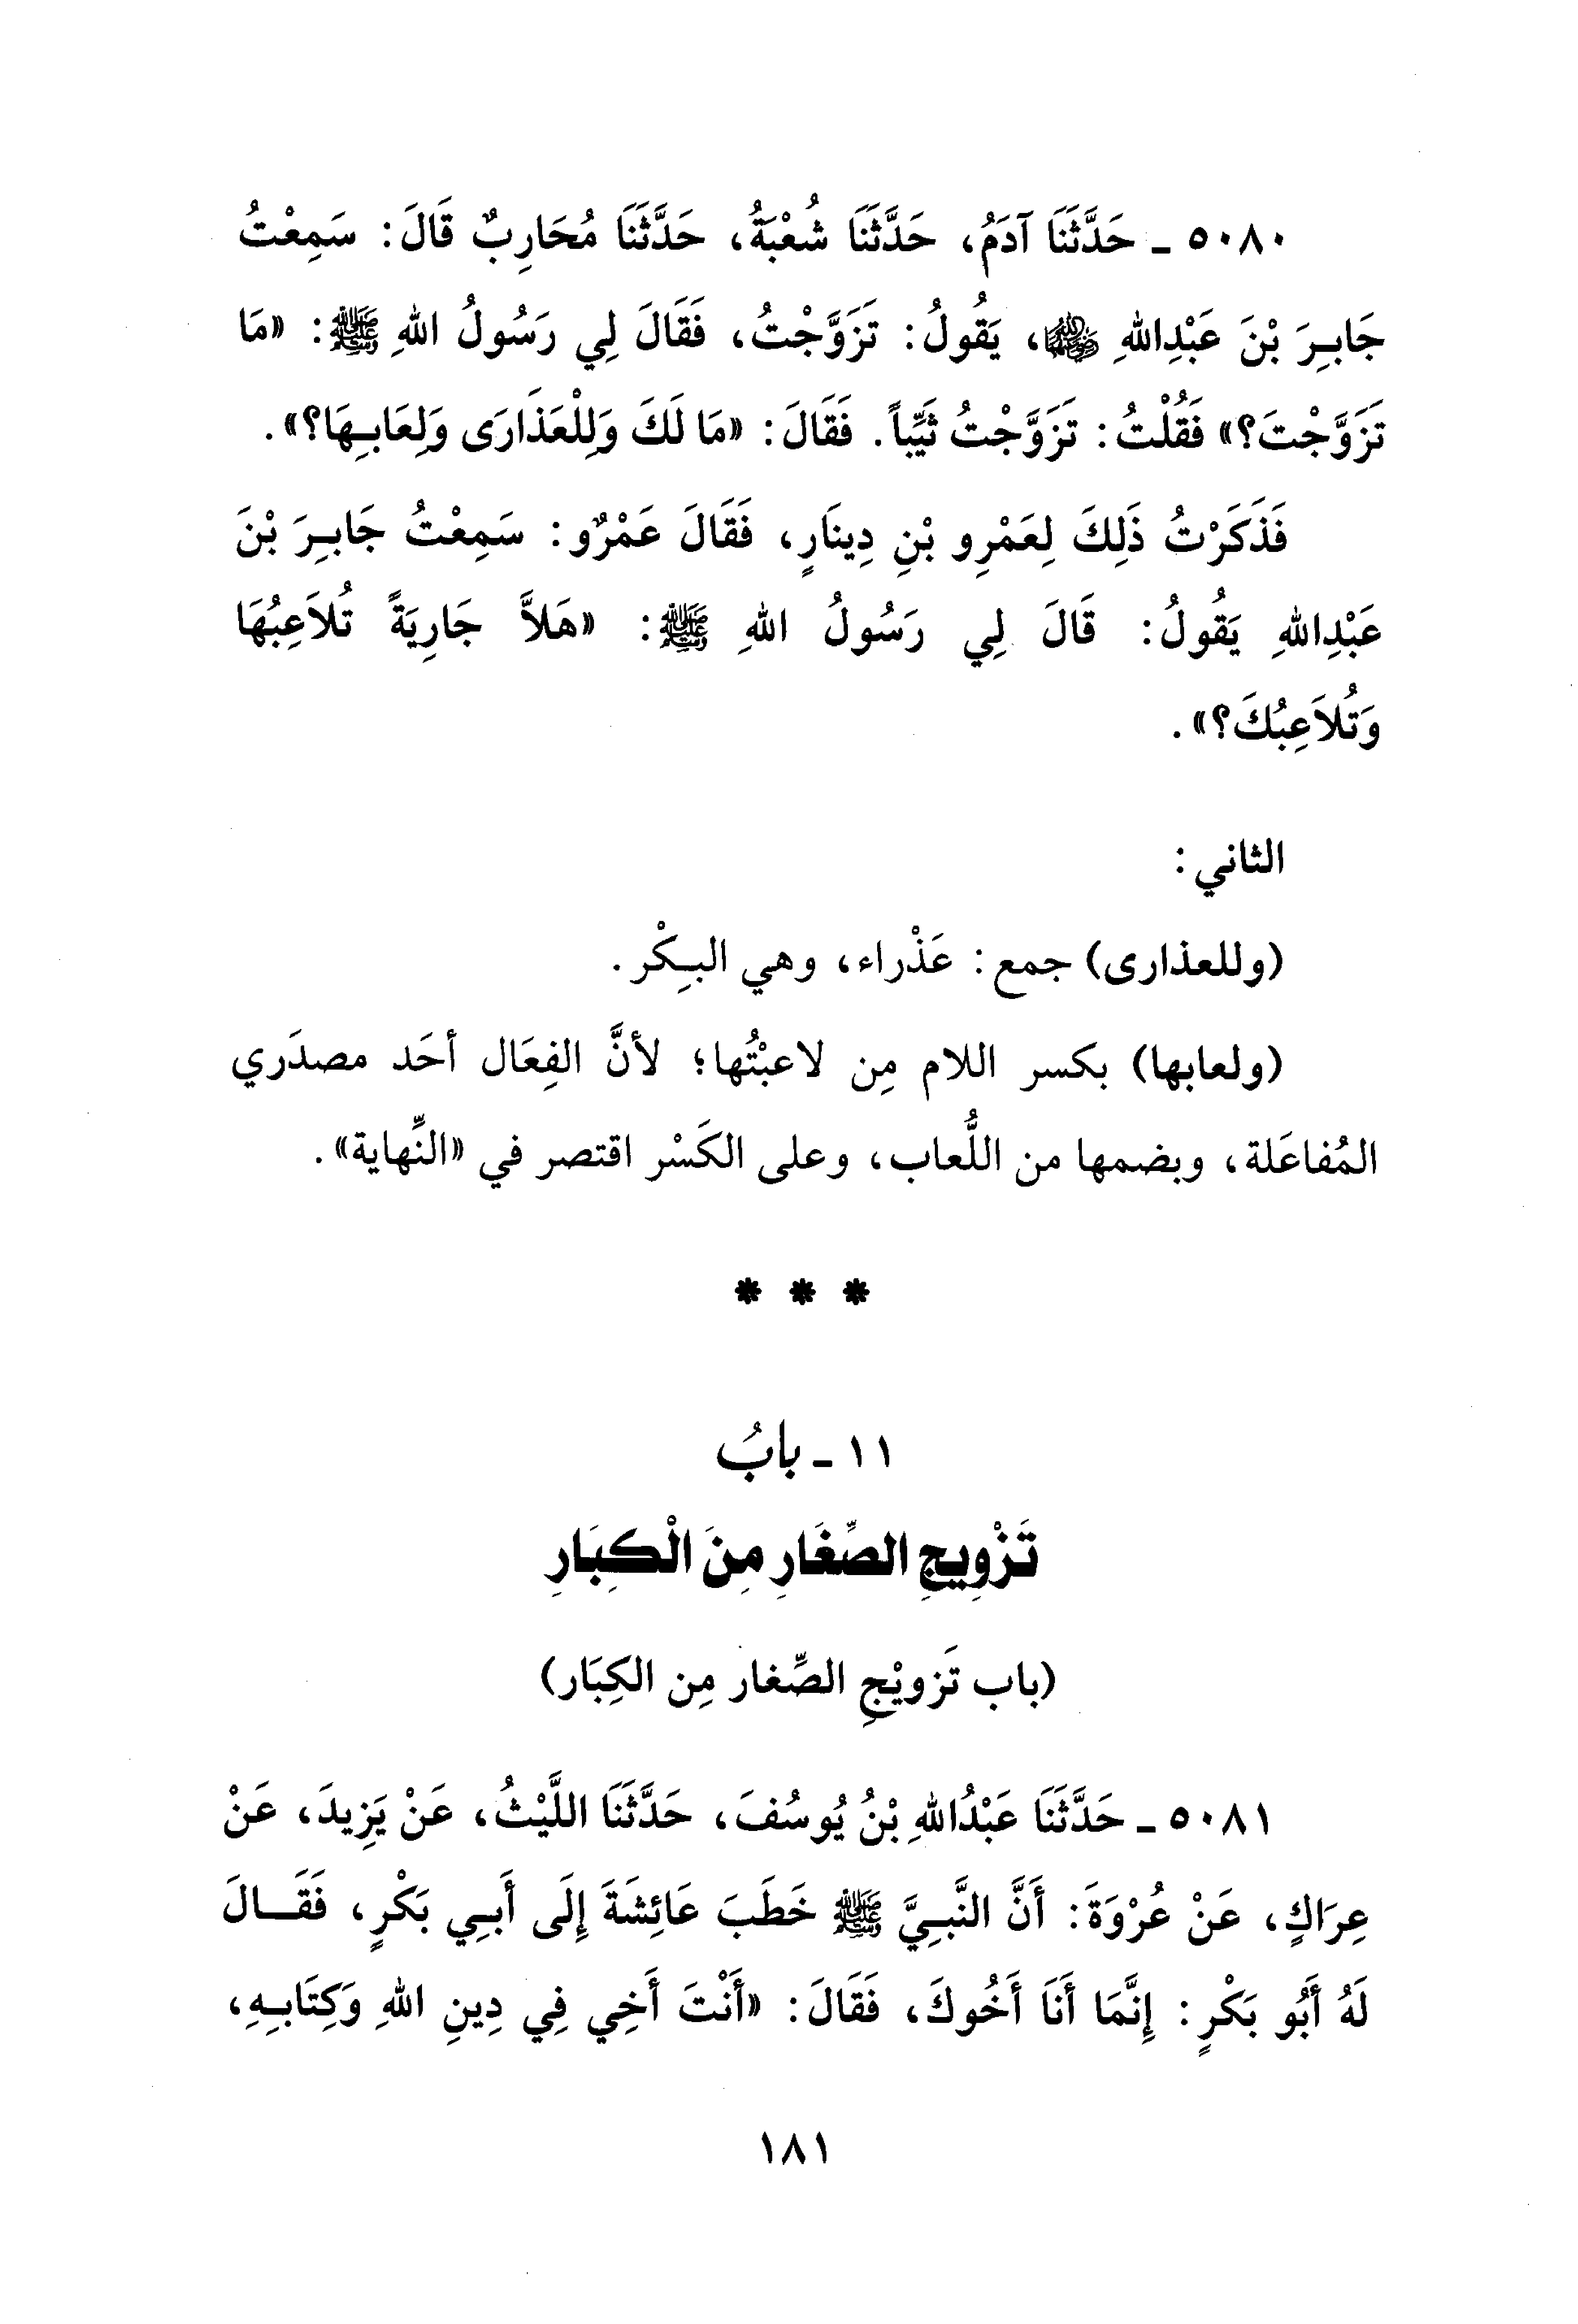 ٥٠٨٠ ـ حَدَّثَنَا آدَمُ، حَدَّثَنَا شُعْبَةُ، حَدَّثَنَا مُحَارِبٌ قَالَ: سَمِعْتُ
جَابِرَ بْنَ عَبْدِاللهِ ﵁، يَقُولُ: تَزَوَّجْتُ، فَقَالَ لِي رَسُولُ اللهِ ﷺ: «مَا
تَزَوَّجْتَ؟» فَقُلْتُ: تَزَوَّجْتُ ثَيِّباً. فَقَالَ: «مَا لَكَ وَلِلْعَذَارَى وَلِعَابِهَا؟».
فَذَكَرْتُ ذَلِكَ لِعَمْرِو بْنِ دِينَارٍ، فَقَالَ عَمْرٌو: سَمِعْتُ جَابِرَ بْنَ
عَبْدِاللهِ يَقُولُ: قَالَ لِي رَسُولُ اللهِ ﷺ: «هَلاَّ جَارِيَةً تُلاَعِبُهَا
وَتُلاَعِبُكَ؟».
الثاني:
(وللعذارى) جمع: عَذْراء، وهي البِكْر.
(ولعابها) بكسر اللام مِن لاعبْتُها؛ لأنَّ الفِعَال أحَد مصدَري
المُفاعَلة، وبضمها من اللُّعاب، وعلى الكَسْر اقتصر في «النِّهاية».
* * *
١١ ـ بابُ
تَزْوِيجِ الصِّغَارِ مِنَ الْكِبَارِ
(باب تَزويْجِ الصِّغار مِن الكِبَار)
٥٠٨١ ـ حَدَّثَنَا عَبْدُاللهِ بْنُ يُوسُفَ، حَدَّثَنَا اللَّيْثُ، عَنْ يَزِيدَ، عَنْ
عِرَاكٍ، عَنْ عُرْوَةَ: أَنَّ النَّبِيَّ ﷺ خَطَبَ عَائِشَةَ إِلَى أَبِي بَكْرٍ، فَقَالَ
لَهُ أَبُو بَكْرٍ: إِنَّمَا أَنَا أَخُوكَ، فَقَالَ: «أَنْتَ أَخِي فِي دِينِ اللهِ وَكِتَابِهِ،
١٨١